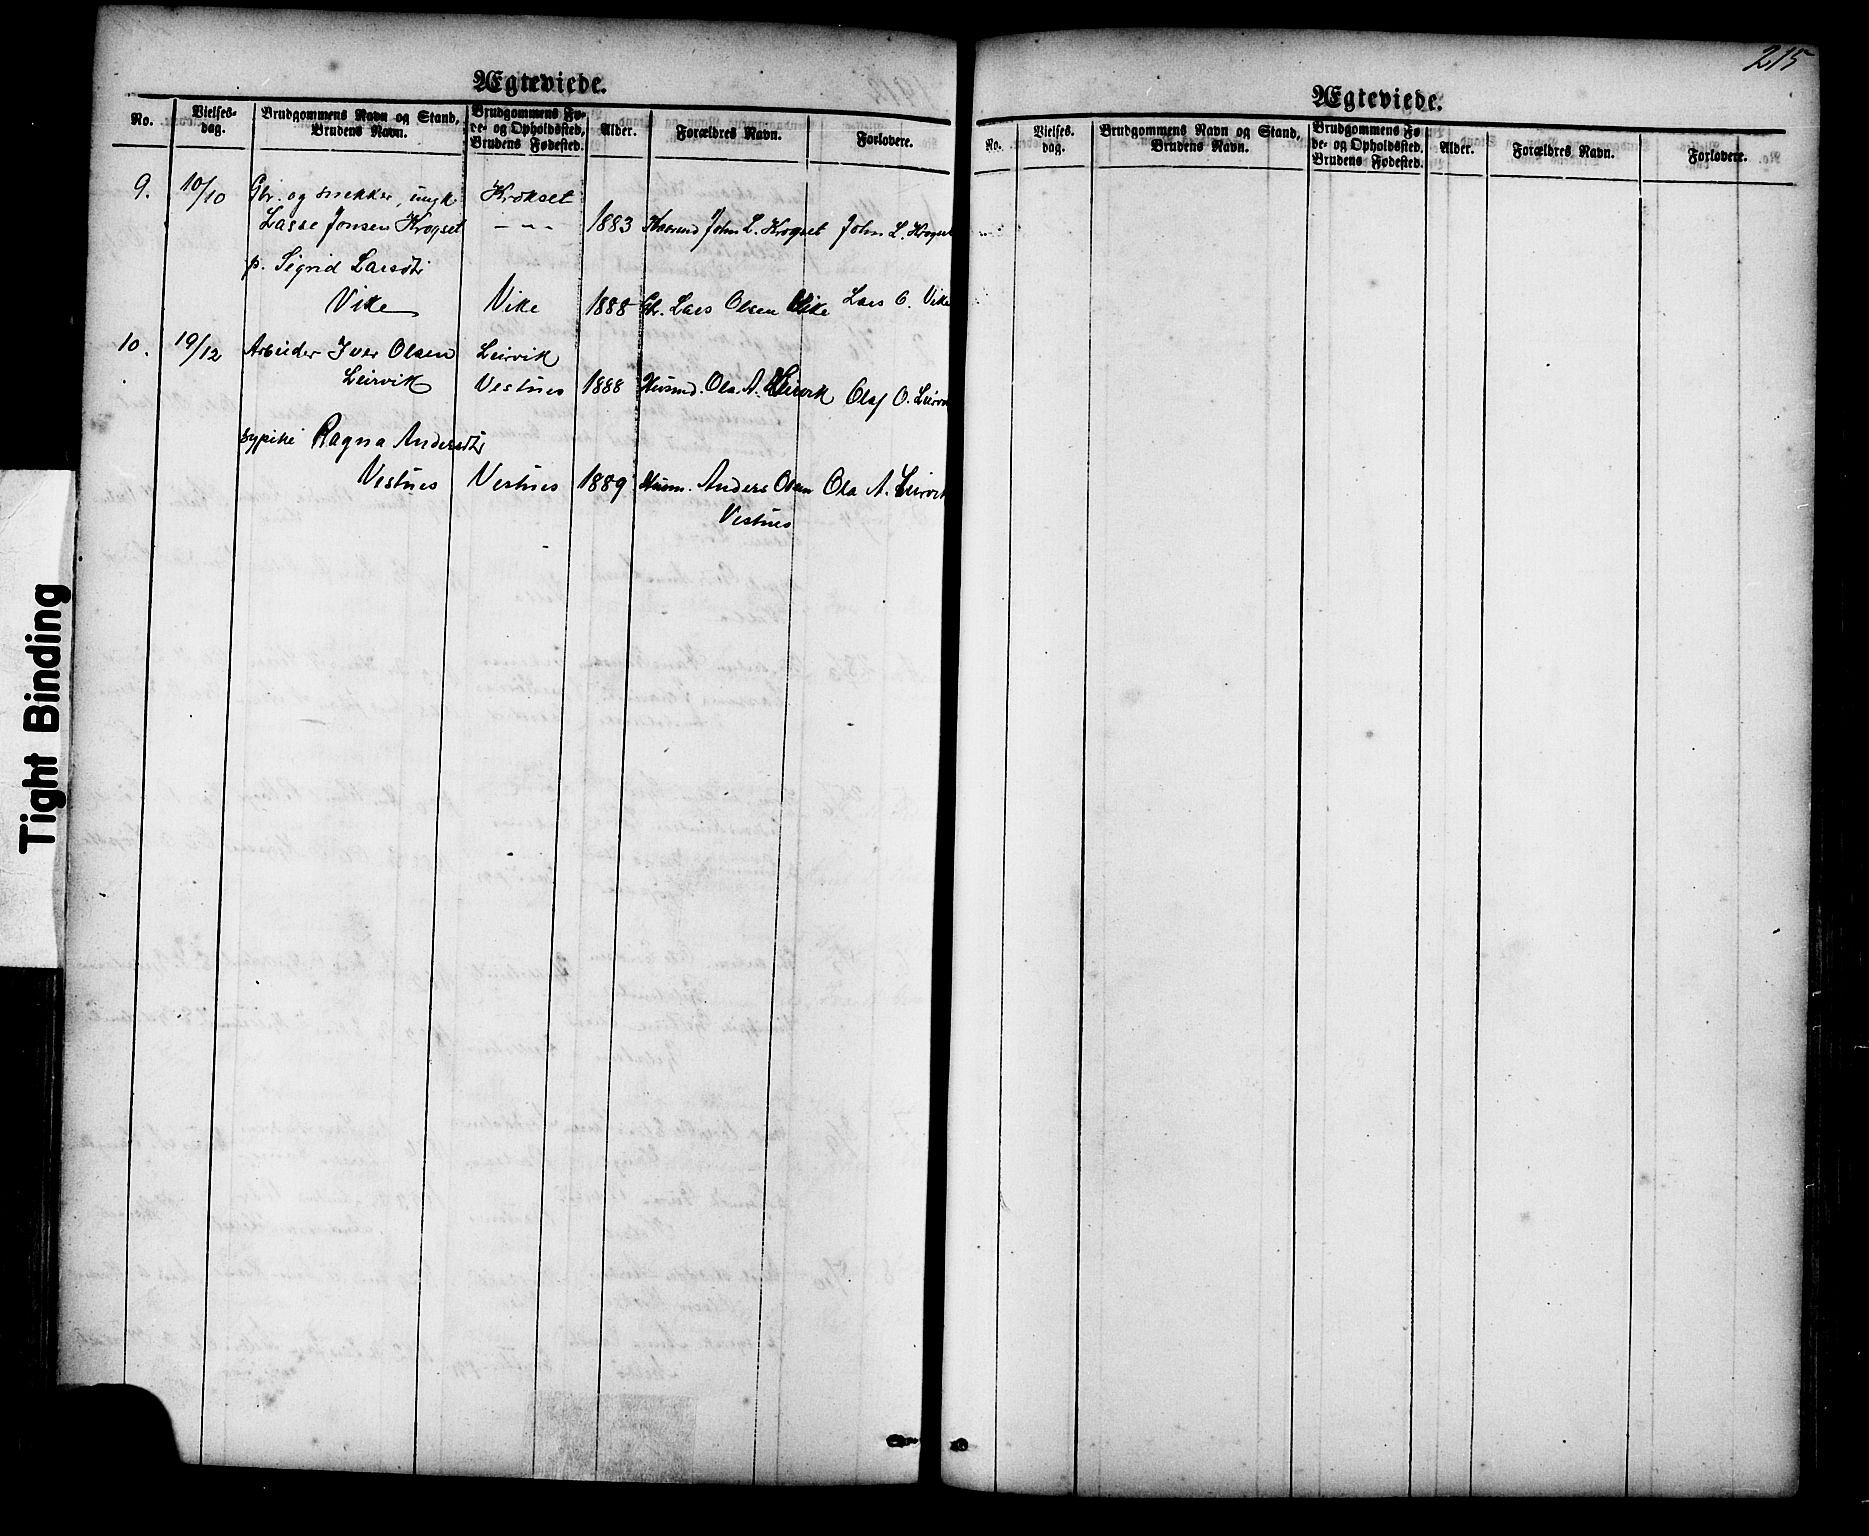 215
Ægteviede.
No. Vielses-dag. Brudgommens Navn og Stand, Brudens Navn. Brudgommens Fø-de- og Opholdssted, Brudens Fødested. Alder. Forældres Navn. Forlovere.
9. 10/10 Gbr. og snekker, ungk Krokset
Lasse Jonsen Krogset - „ - 1883 John L. Krogset John L. Krogset
p. Sigrid Larsdtr
Vike Vike 1888 Gbr. Lars Olsen Vike Lars O. Vike
10. 19/12 Arbeider Iver Olsen Leirvik
Leirvik Vestnes 1888 Husmd. Ola A. Leirvik Olaf O. Leirvik
sypike Ragna Andersdtr
Vestnes Vestnes 1889 Husm. Anders Olsen Ola A. Leirvik
Vestnes
Ægteviede.
No. Vielses-dag. Brudgommens Navn og Stand, Brudens Navn. Brudgommens Fø-de- og Opholdssted, Brudens Fødested. Alder. Forældres Navn. Forlovere.
Tight Binding